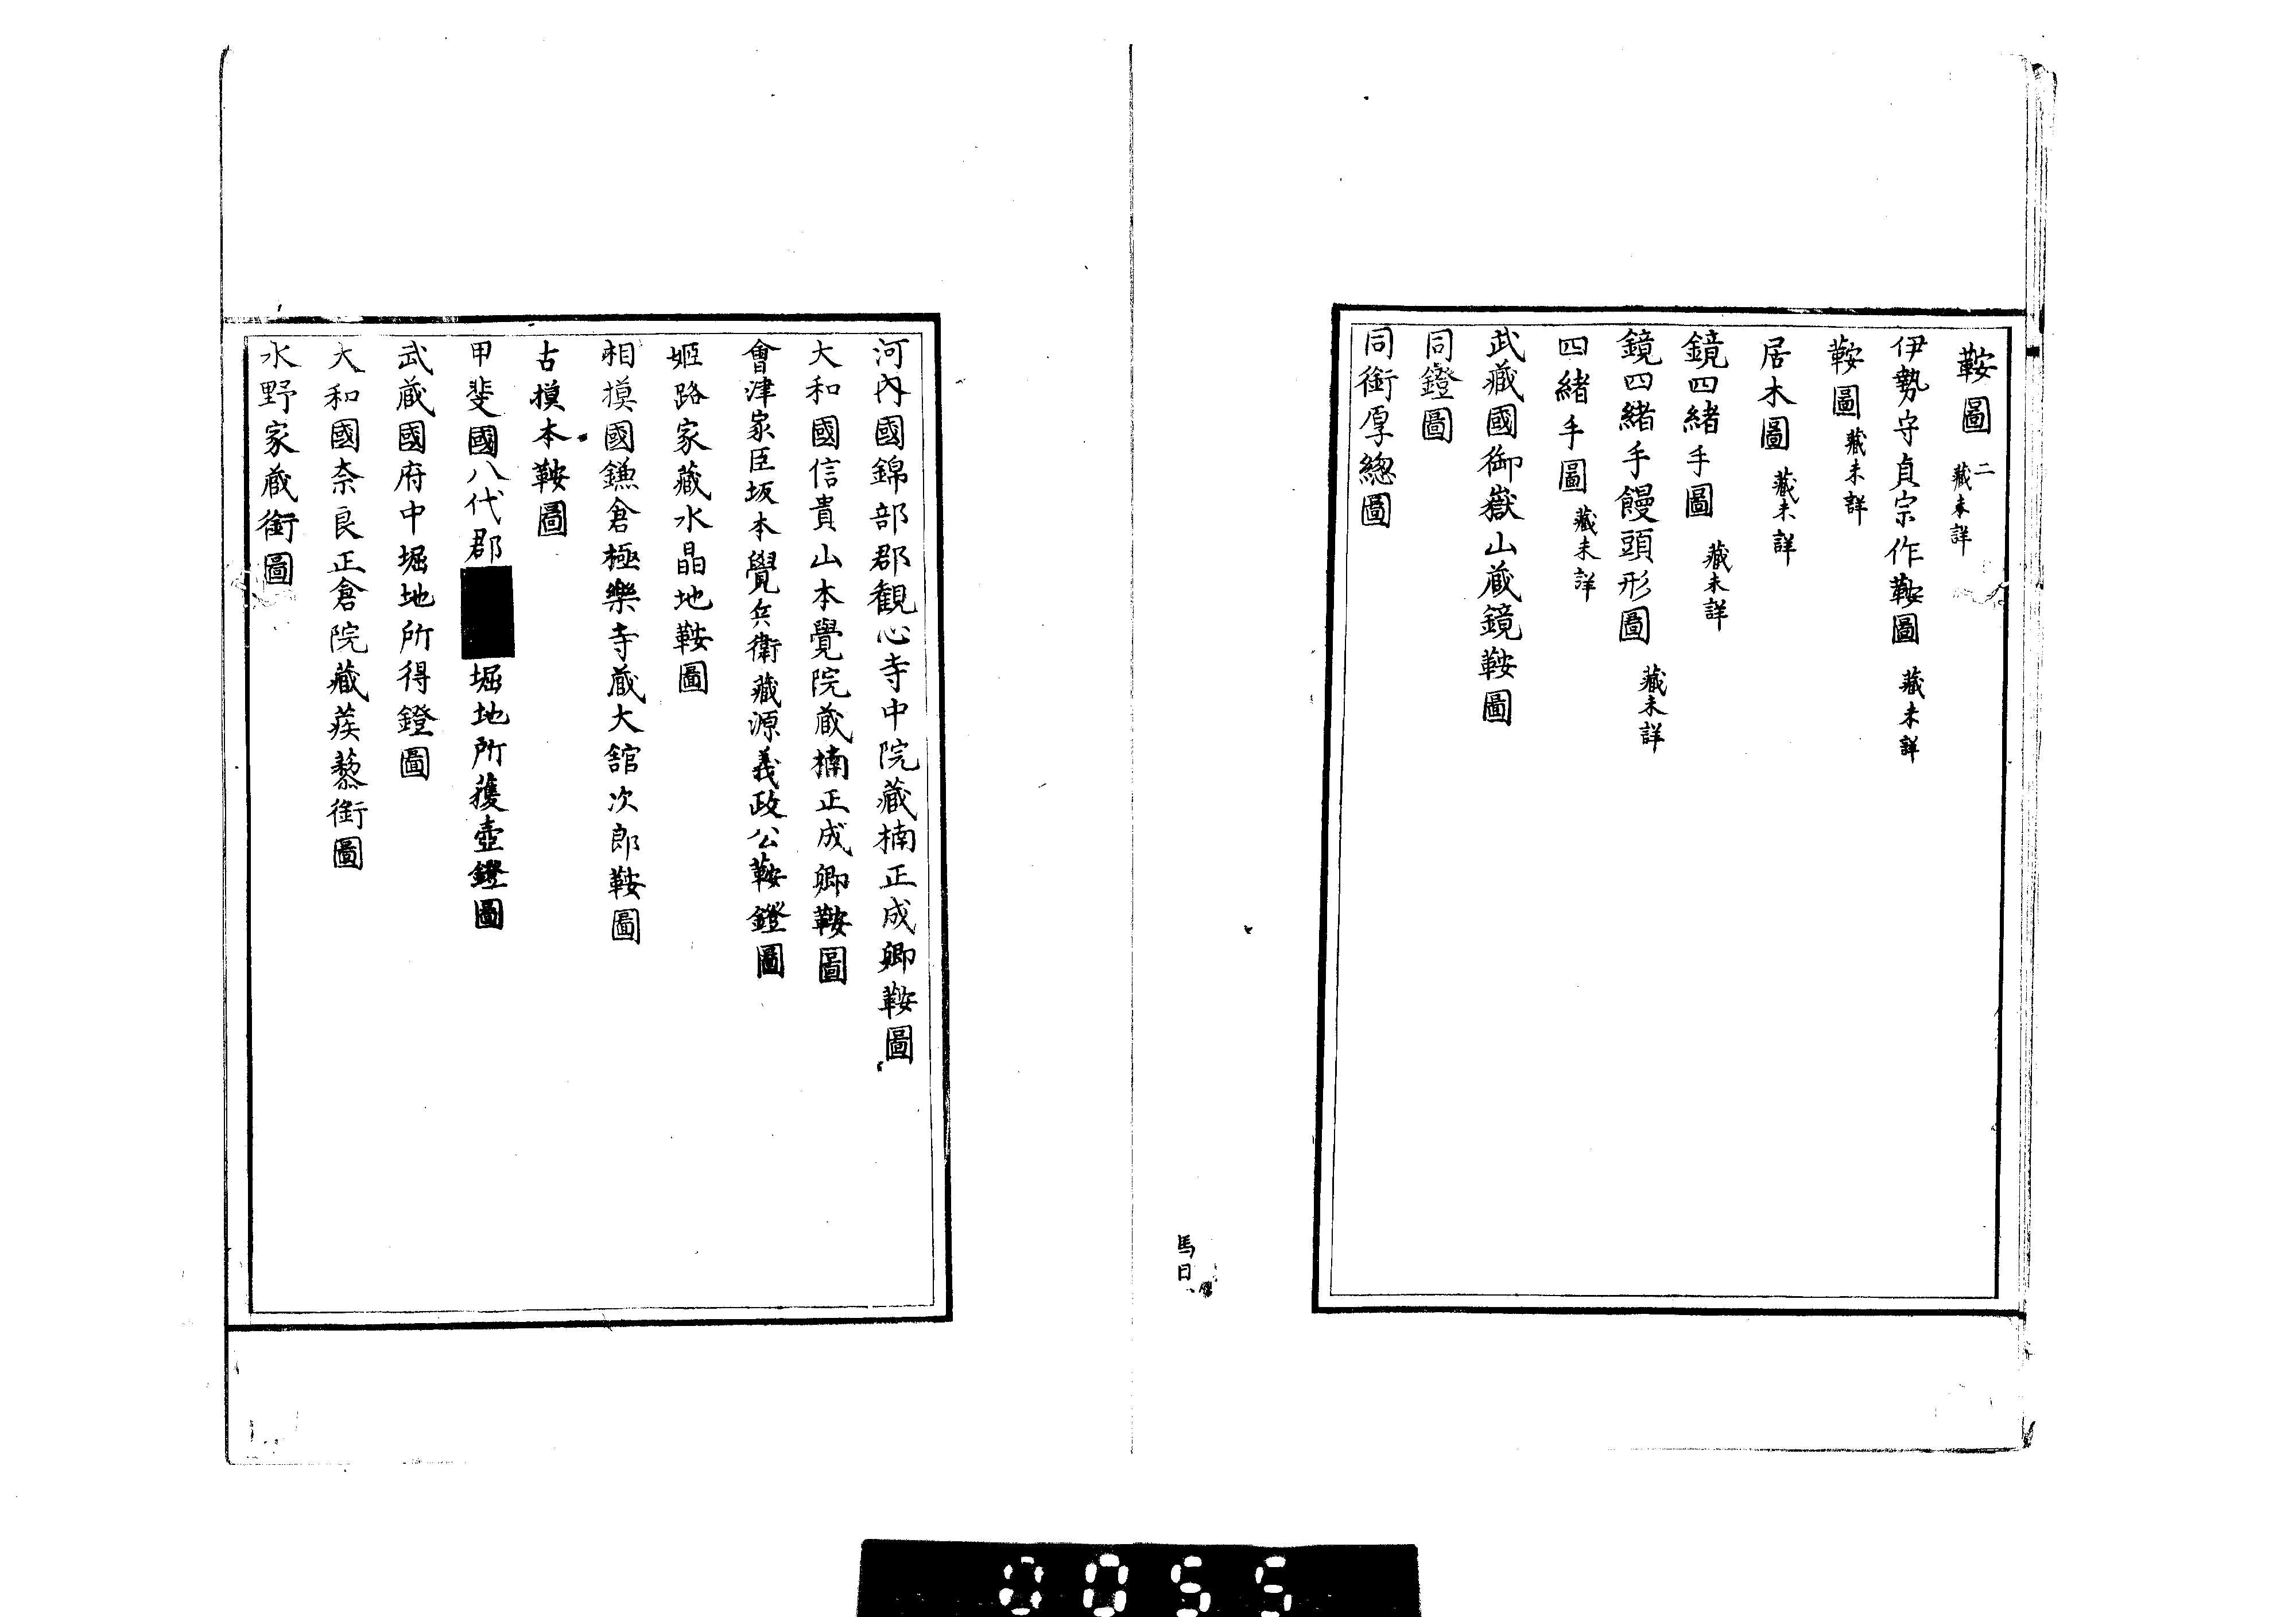 鞍圖 二 藏未詳
伊勢守貞宗作鞍圖 藏未詳
鞍圖 藏未詳
居木圖 藏未詳
鏡四緒手圖 藏未詳
鏡四緒手饅頭形圖 藏未詳
四緒手圖 藏未詳
武藏國御嶽山藏鏡鞍圖
同鐙圖
同銜厚總圖
馬目
河內國錦部郡観心寺中院藏楠正成卿鞍圖
大和國信貴山本覺院藏楠正成卿鞍圖
會津家臣坂本覺兵衛藏源義政公鞍鐙圖
姬路家藏水晶地鞍圖
相摸國鎌倉極樂寺藏大舘次郎鞍圖
古摸本鞍圖
甲斐國八代郡 堀地所獲壺鐙圖
武藏國府中堀地所得鐙圖
大和國奈良正倉院藏蒺藜銜圖
水野家藏銜圖
0055